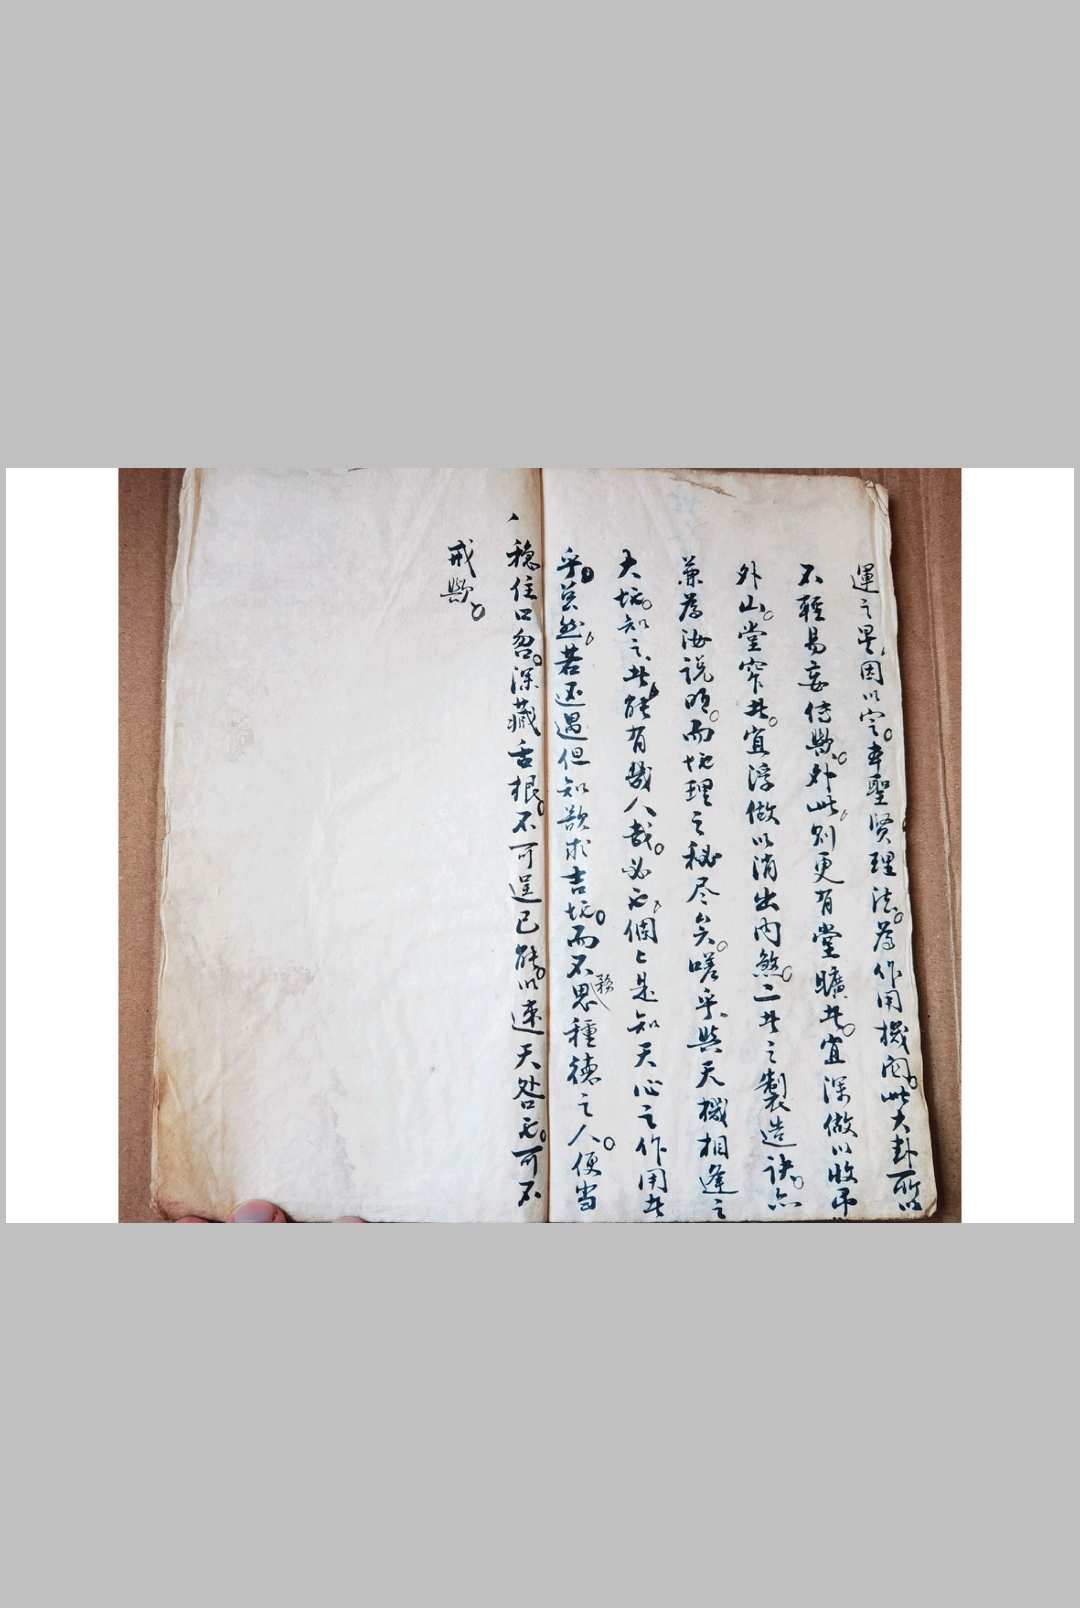 運之星因以定。本聖賢理法。為作用機関。此大卦所以
不輕易妄傳歟。外此別更有堂曠者。宜深做以收帀
外山。堂窄者。宜浮做以消出内煞。二者之製造訣。亦
兼為汝説明。而地理之秘尽矣。嗟乎。與天機相逢之
大地。知之者能有幾人哉。必也個々是知天心之作用者
乎。豈然。若还遇但知欲求吉地。而不思務種德之人。便当
穏住口忽。深藏舌根。不可逞已能。以速天咎也。可不
戒歟。